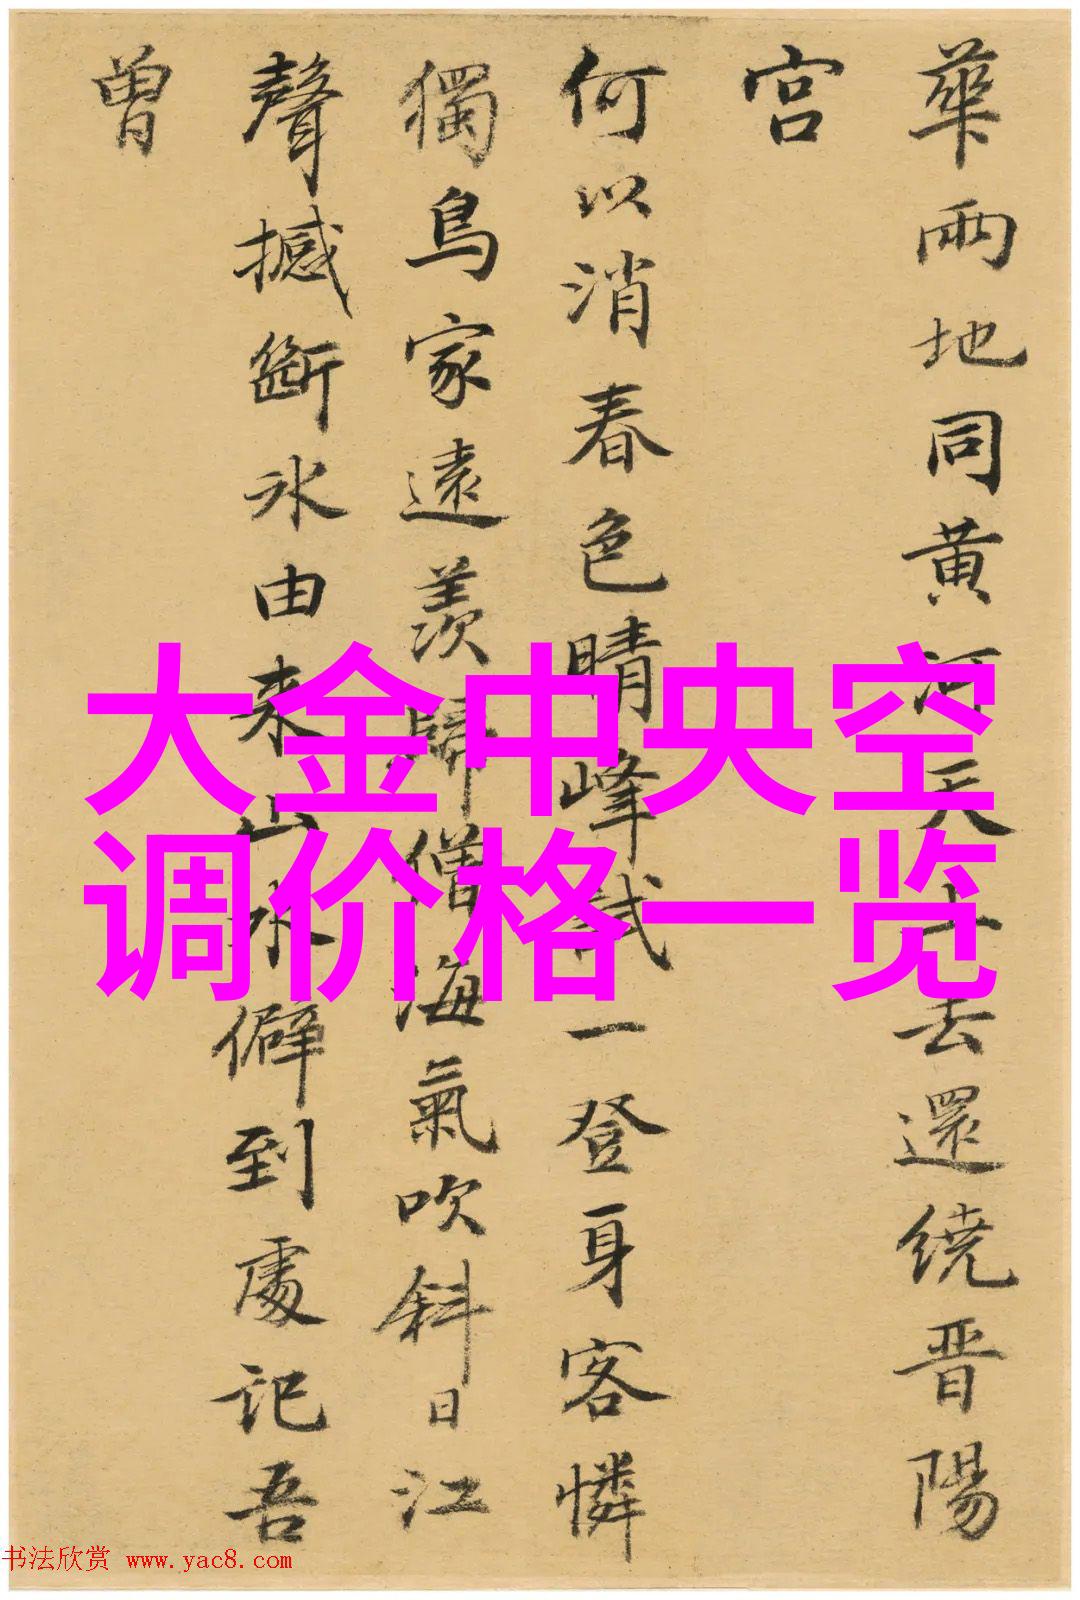 華兩地同黄河天上去還繞晋陽
宫
何以消春色晴峰試一登身客憐
獨鳥家遠羡歸僧海氣吹斜日江
聲撼斷冰由来山水僻到處記吾
曾
大金中央空
调价格一览
书法欣赏 www.yac8.com